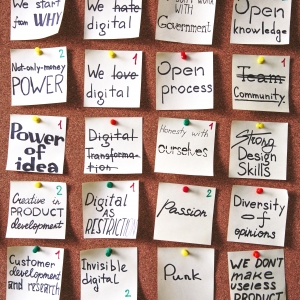 We start
from WHY
We hate
digital
WITH
Government
Open
knowledge
2
Not-only-money
POWER
We love
digital
Open
process
1
Team
Community
Power
of
idea
1
Digital
Transforma-
tion
1
Honesty with
ourselves
Strong
Design
Skills
2
Creative in
PRODUCT
development
1
Digital
AS
RESTRICTION
Passion
Diversity
of
opinions
1
Customer
development
and research
Invisible
digital
2
Punk
WE DON'T
make
useless
PRODUCT